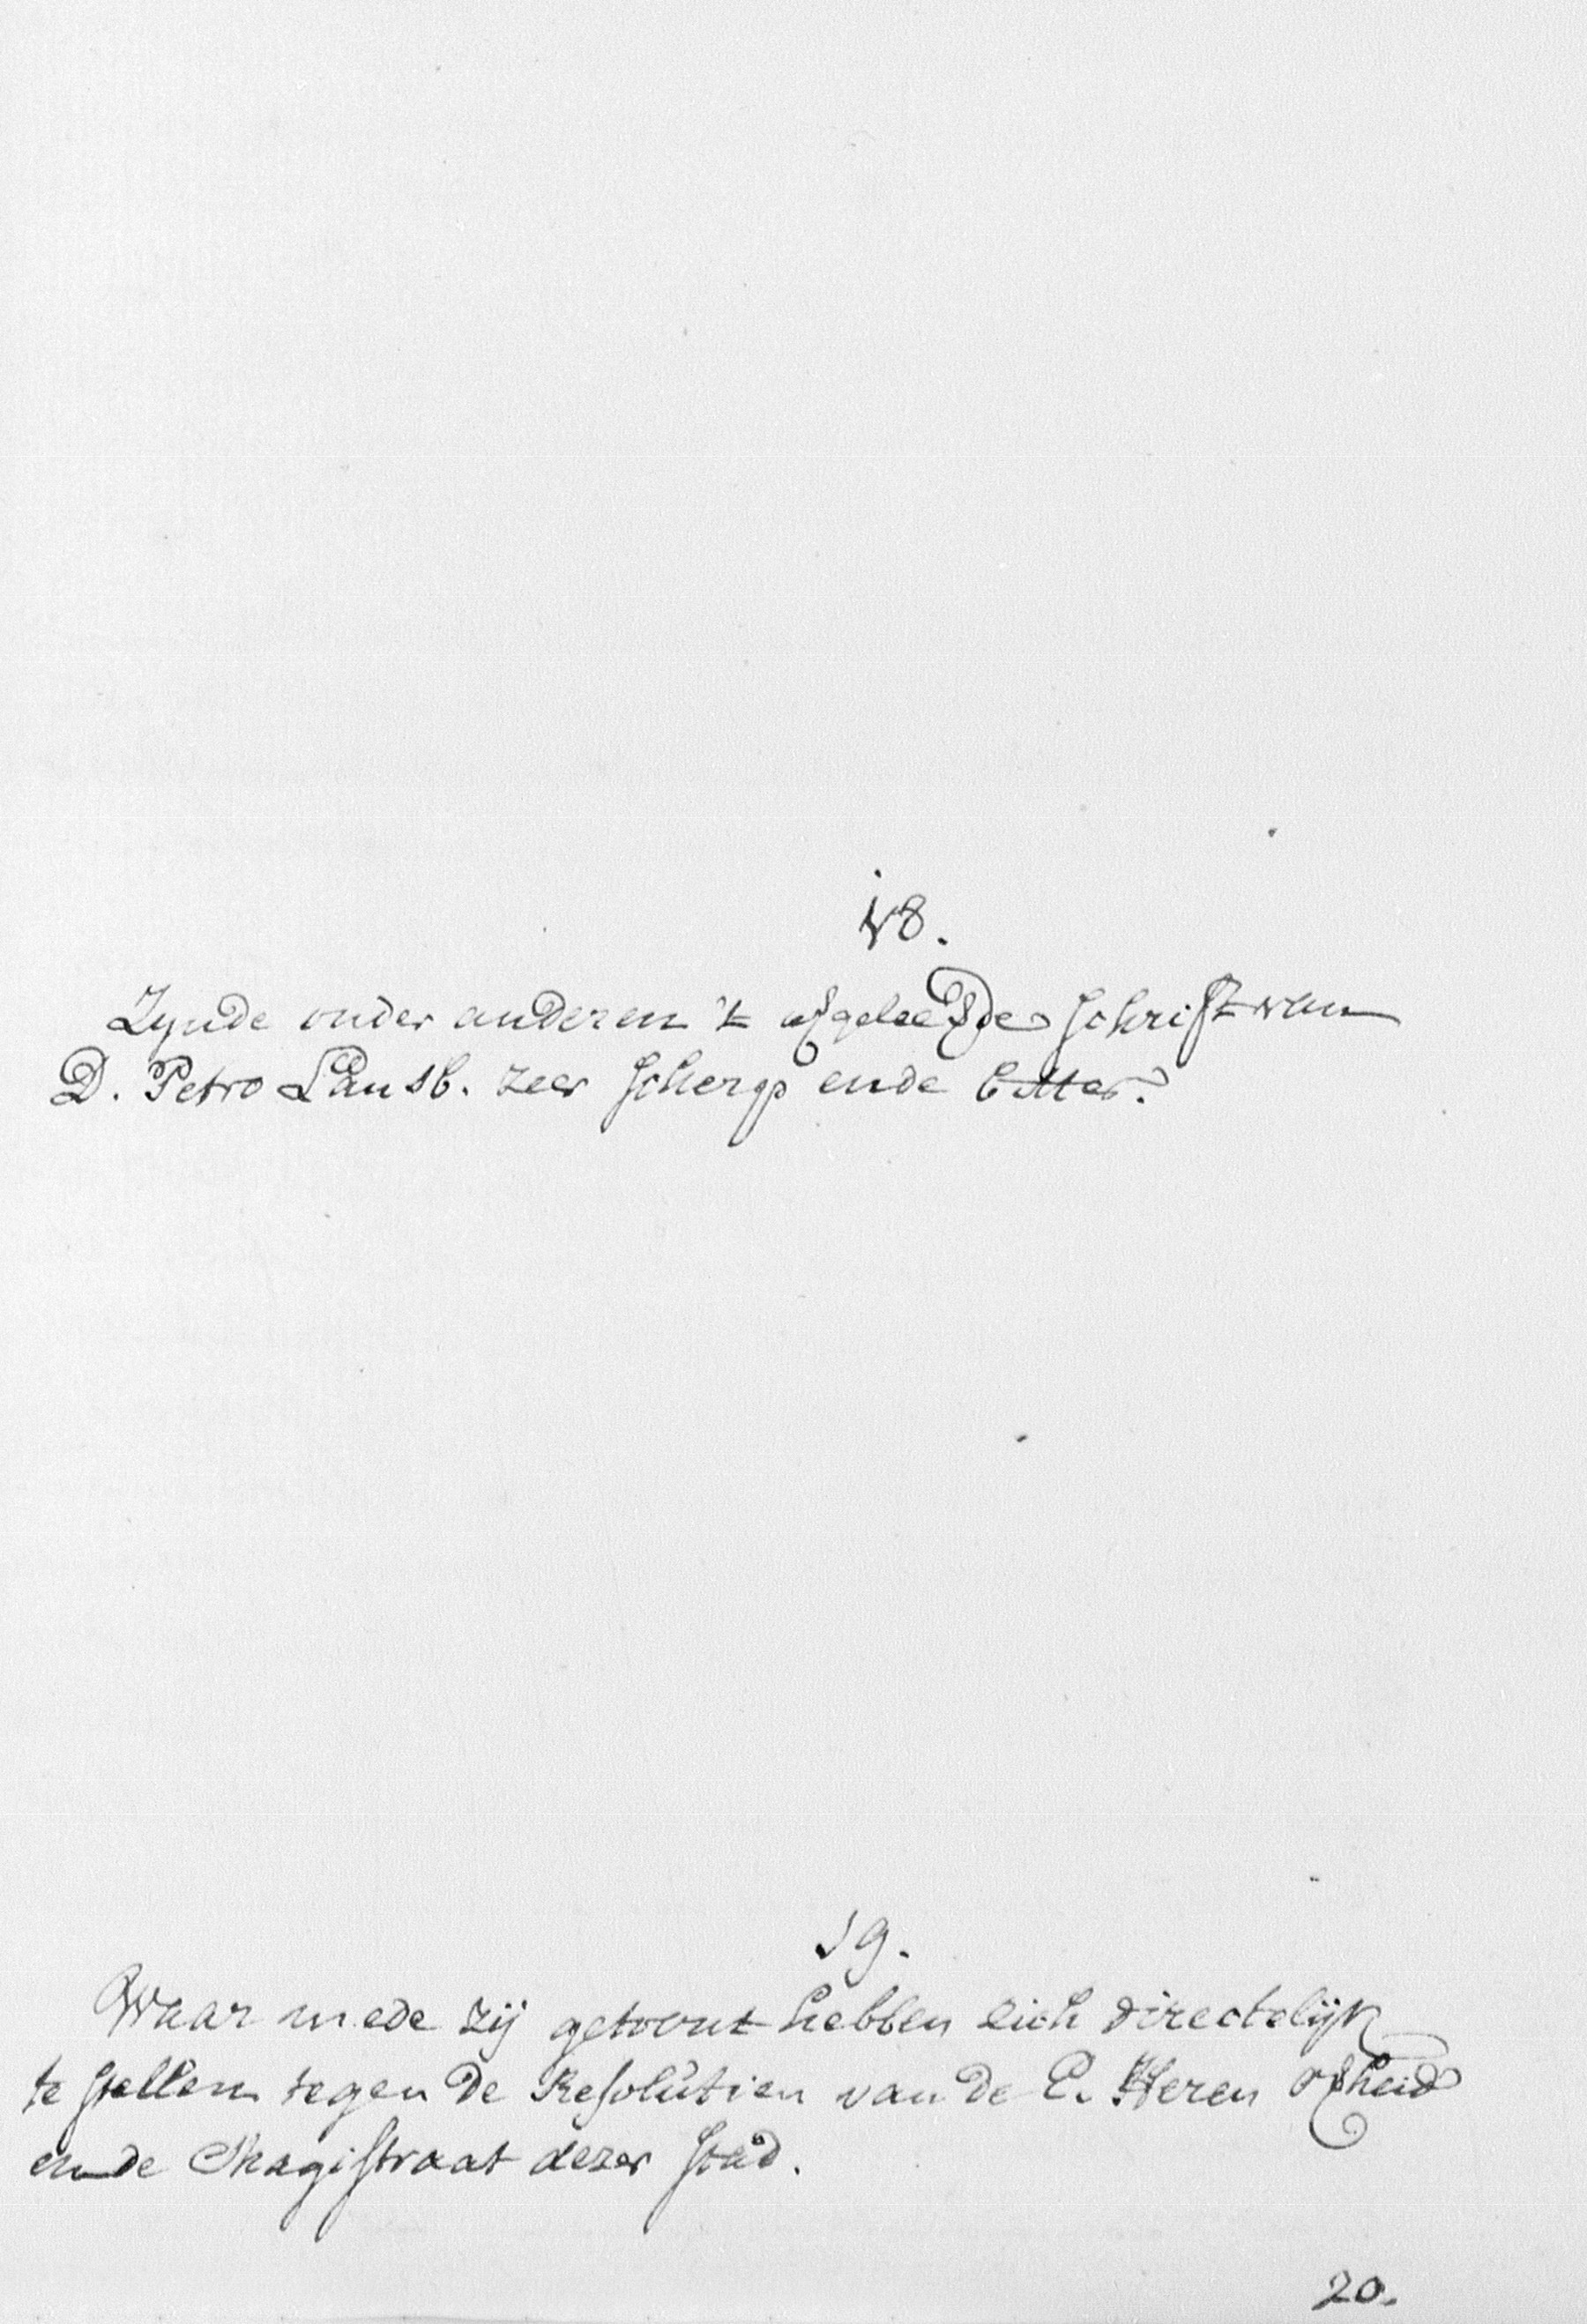 18.
Zynde onder anderen 't afgeleesde schrift van
D. Petro Lansb. zeer scherp ende bitter.
19.
Waar mede zij getoont hebben sich directelijk
te stellen tegen de Resolutien van de E. Heren
ende Magistraat dezer stad.
20.